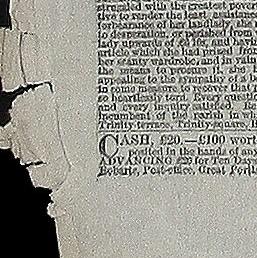 struggled with the greatest pover
tive to render the least assistance
forbearance of her landlady, she m
to desperation, or perished from w
lady upwards of £6 10s, and havin
article which she had missed from
her scanty wardrobe, and in vain
the means to procure it, she i
appealing to the sympathy of a p
in some measure, to recover that p
so heartlessly torn. Every questi
and every inquiry satisfied. Re
incumbent of the parish in wh
Trinity-terrace, Trinity-square, B
CASH, £20.—£100 wort
posited in the hands of any
ADVANCING £20 for Ten Days
Roberts, Post-office, Great Portla